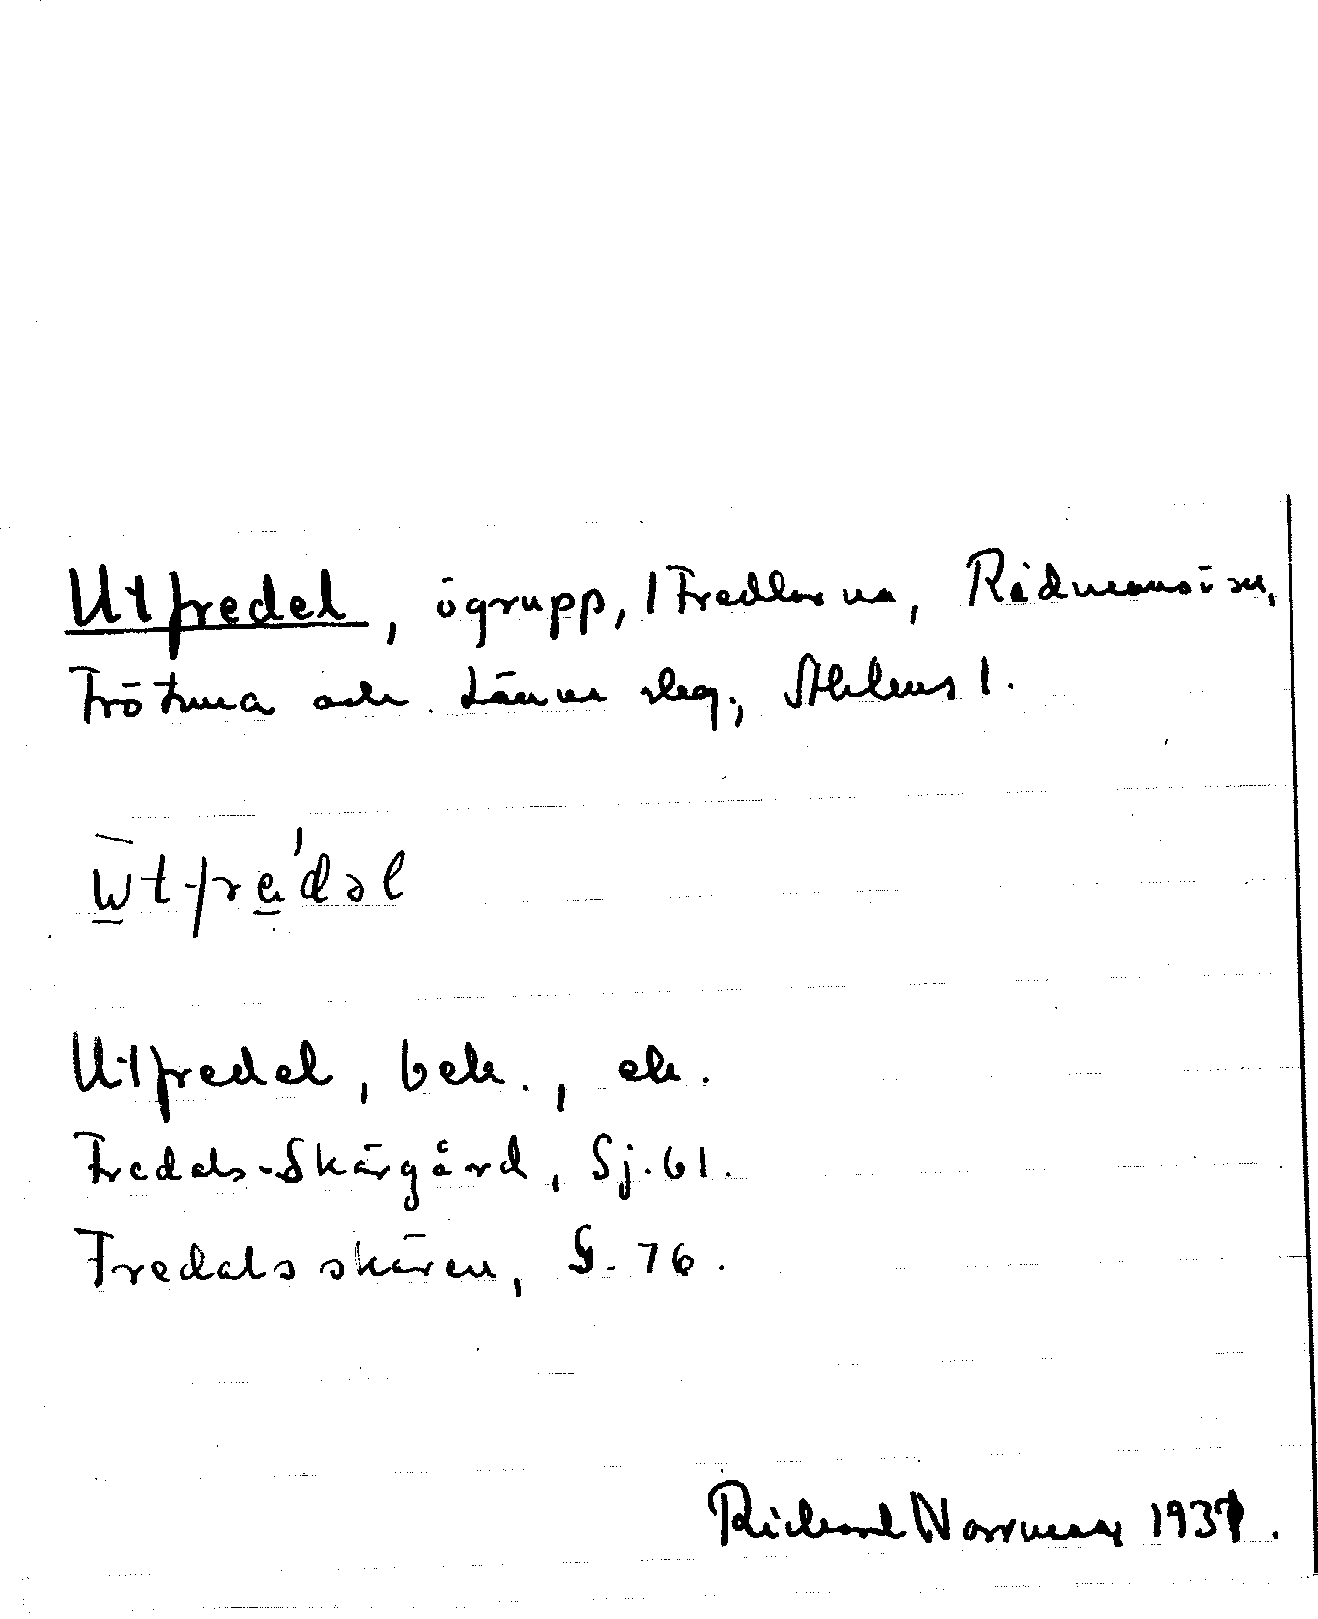 Utfredel, ögrupp, i Fredlarna, Rådmansö sn,
Frötuna och Länna skg., Sthlms l.
ẁtfre̱´dəl
Utfredel, bek., ek.
Fredels-Skärgård, Sj. 61.
Fredels skären, G. 76.
Richard Norrman 1937.